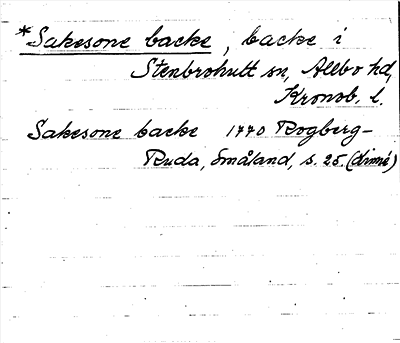 *Sakesone backe, backe i
Stenbrohult sn, Allbo hd,
Kronob. l.
Sakesone backe 1770 Rogberg-
Ruda, Småland, s. 25.